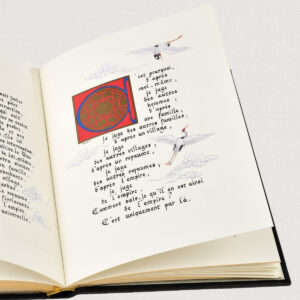 florissante,
universelle.
est pourquoi,
d'après
moi-même,
je juge
des autres
hommes ;
d'après
une famille,
je juge des autres familles ;
d'après un village,
je juge
des autres villages ;
d'après un royaume,
je juge
des autres royaumes ;
d'après l'empire,
je juge
de l'empire ;
Comment sais-je qu'il en est ainsi
de l'empire ?
C'est uniquement par là.